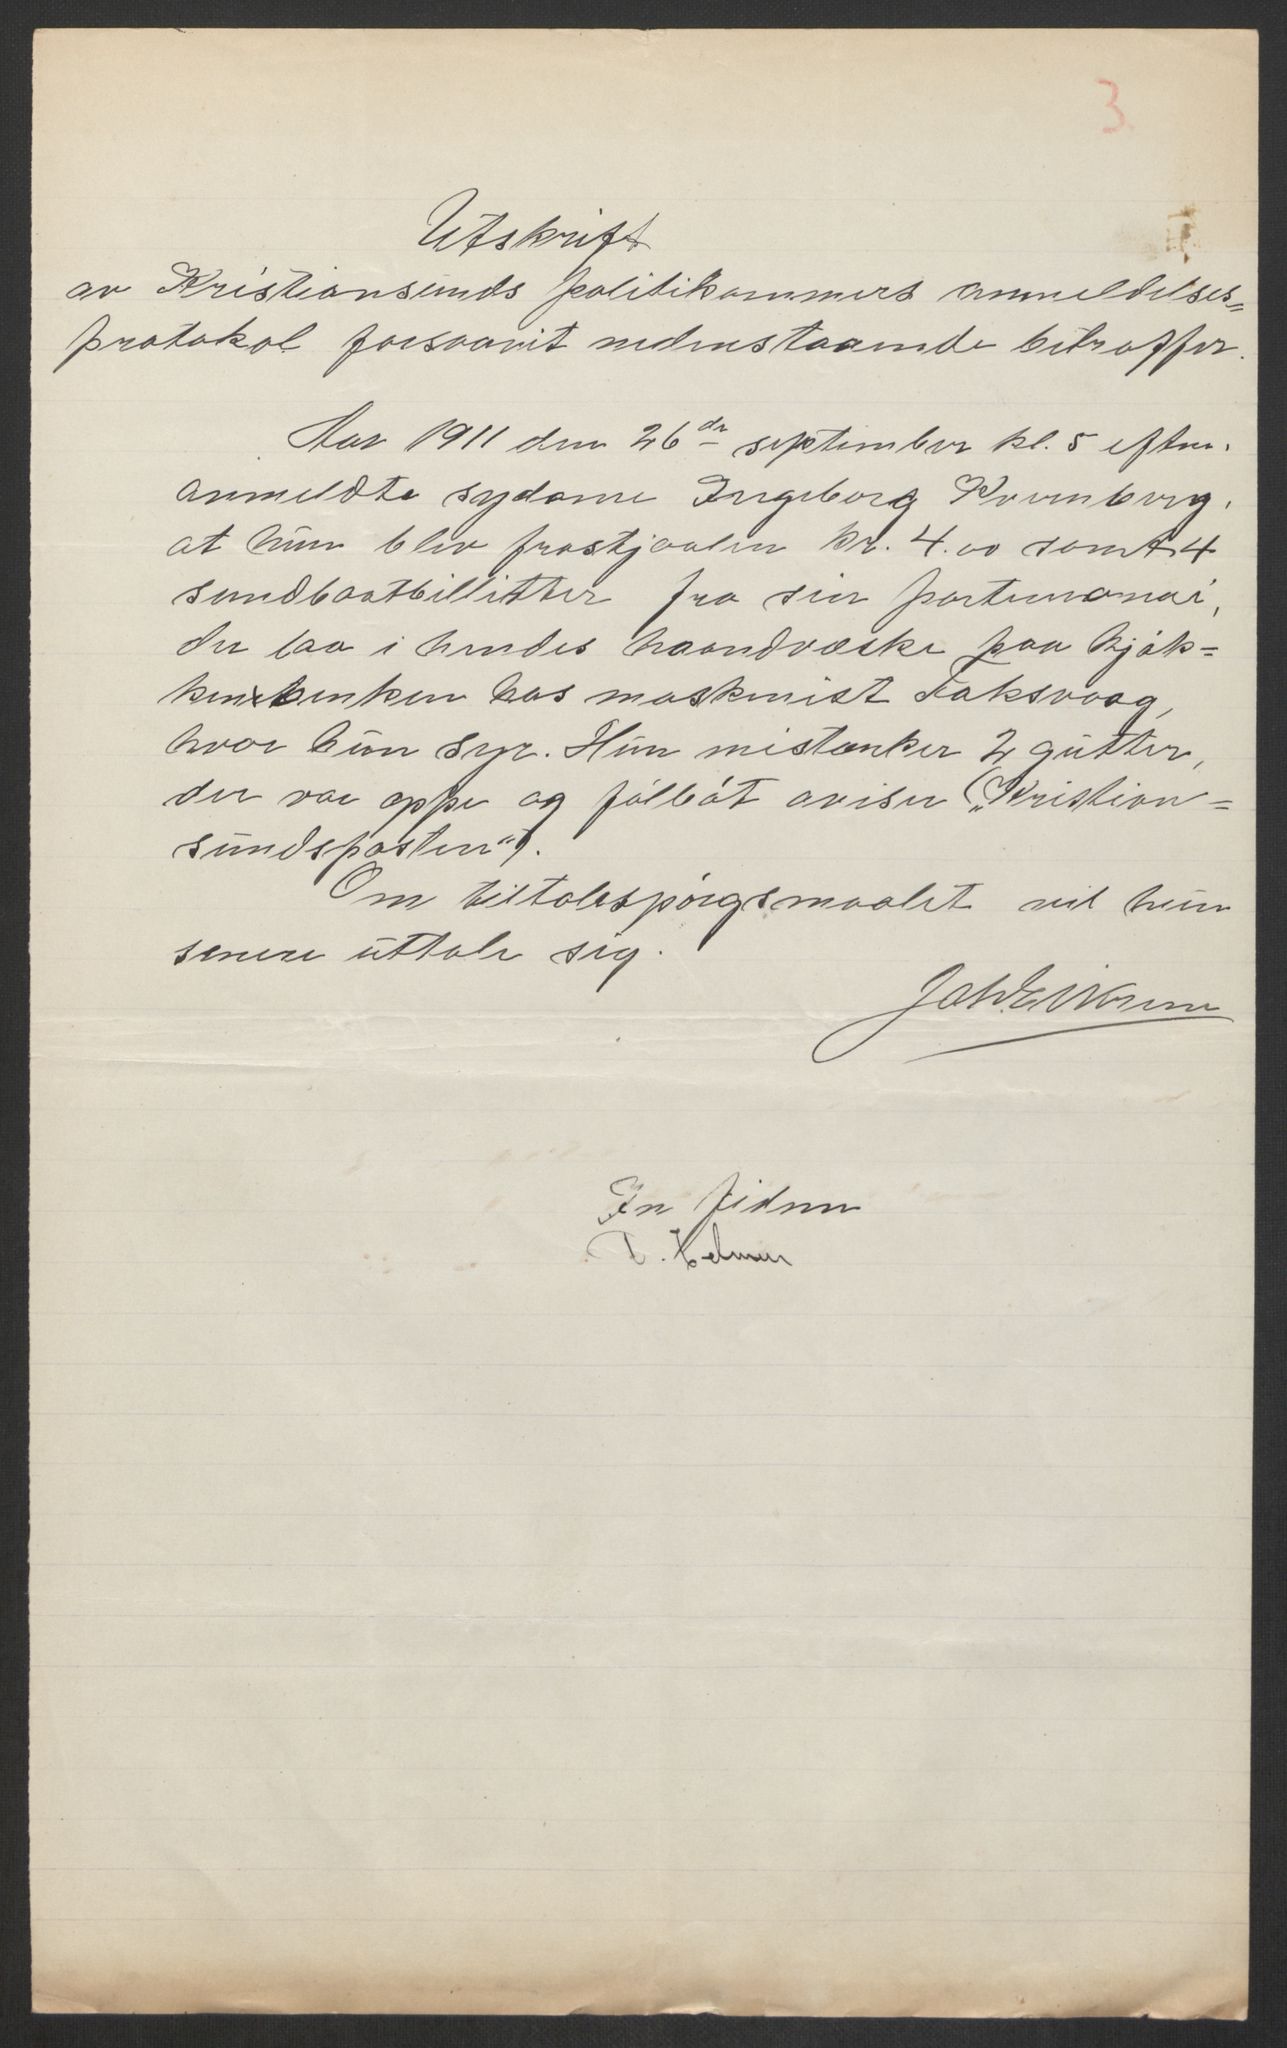 3
Utskrift
av Kristiansunds politikammers anmeldelses=
protokol forsaavit nedenstaaende betræffer.
Aar 1911 den 26de september kl. 5 eftm.
anmeldte sydame Ingeborg
at hun blev frastjaalen kr. 4.00 samt 4
sundbaatbilletter fra sin portemonai,
der laa i hendes haandvæske paa kjøk=
kenbenken hos maskinist Faksvaag,
hvor hun syr. Hun mistænker 2 gutter,
der var oppe og falbøt aviser („Kristian=
sundsposten").
Om tiltalespørgsmaalet vil hun
senere uttale sig.